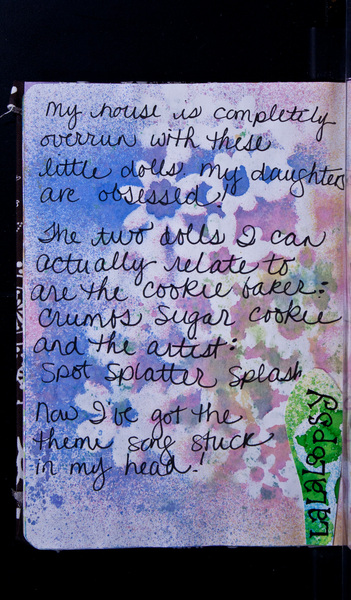 my house is completely
overrun with these
little dolls, my daughters
are obsessed!
The two dolls I can
actually relate to
are the cookie baker:
Crumbs Sugar Cookie
and the artist:
Spot Splatter Splash
Now I've got the
theme song stuck
in my head!
LaLaLoopsy